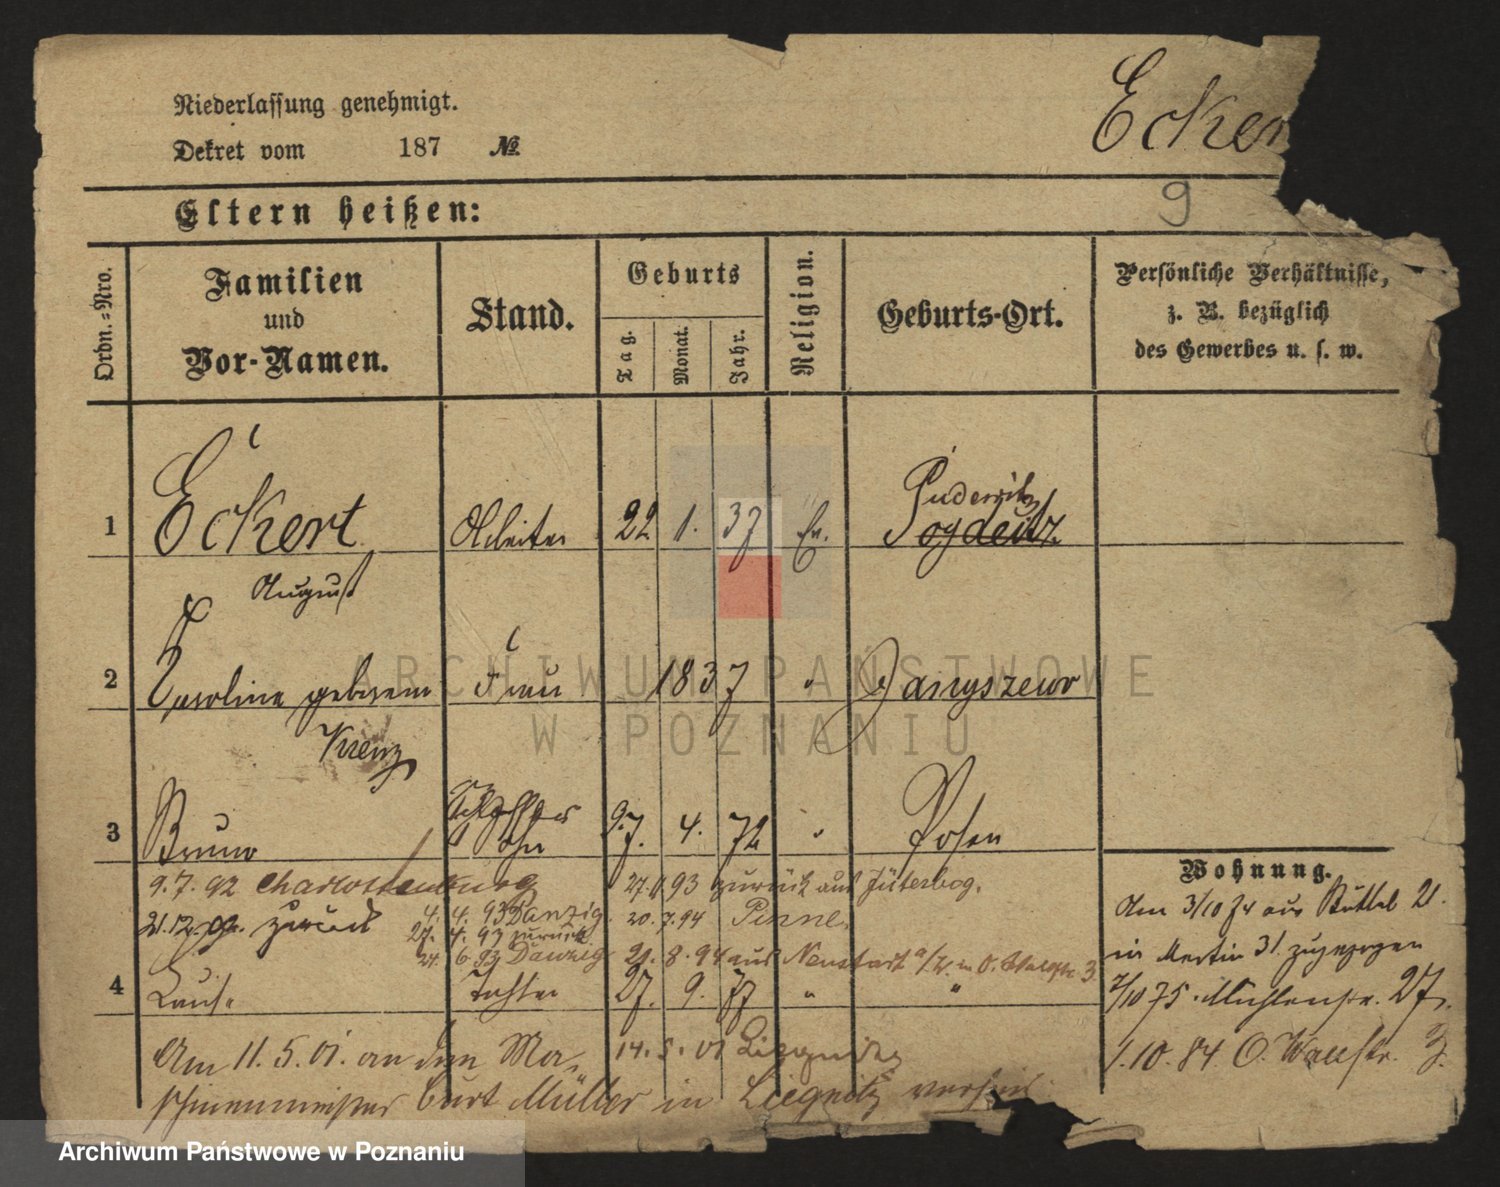 Niederlassung genehmigt.
Ecker
Dekret vom 187 №
9
Eltern heißen:
Ordn.-Nro.
Familien
und
Vor-Namen.
Stand.
Geburts
Tag.
Monat.
Jahr.
Religion.
Geburts-Ort.
Persönliche Verhältnisse,
z. B. bezüglich
des Gewerbes u. s. w.
Puderwitz
1 Eckert Arbeiter 22 1. 37 Ev.
August
2 Caroline geborene Frau 1837 " Januszewo
Krenz
3 Bruno Sohn 4. 72 " Posen
9.7.92 Charlottenburg 93 zurück aus Jüterbog.
21.12.92. zurück 4. 4. 93 Danzig. 20.7.94 Pinne.
4. 93 zurück
6. 93 Danzig 8.94 aus Neustadt
4 Louise Tochter 27. 9. 77 " "
Am 11.5.01. an den Ma-
14.5.01 Liegnitz
schinenmeister Curt Müller in Liegnitz verheir
Wohnung.
Am 3/10 74 aus Büttel 21.
in Martin 31. zugezogen
/10 75. Mühlenstr. 27.
1.10.84 O. Wallstr. 3.
ARCHIWUM PAŃSTWOWE
W POZNANIU
Archiwum Państwowe w Poznaniu